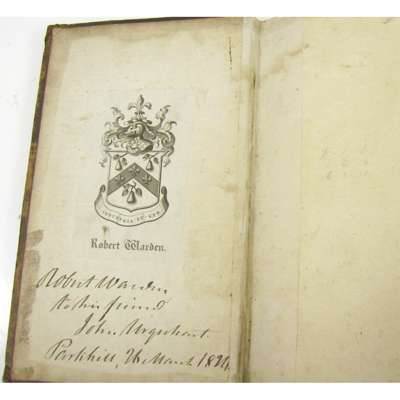 Robert Warden.
Robert Warden
to his friend
John Urquhart
Parkhill, March